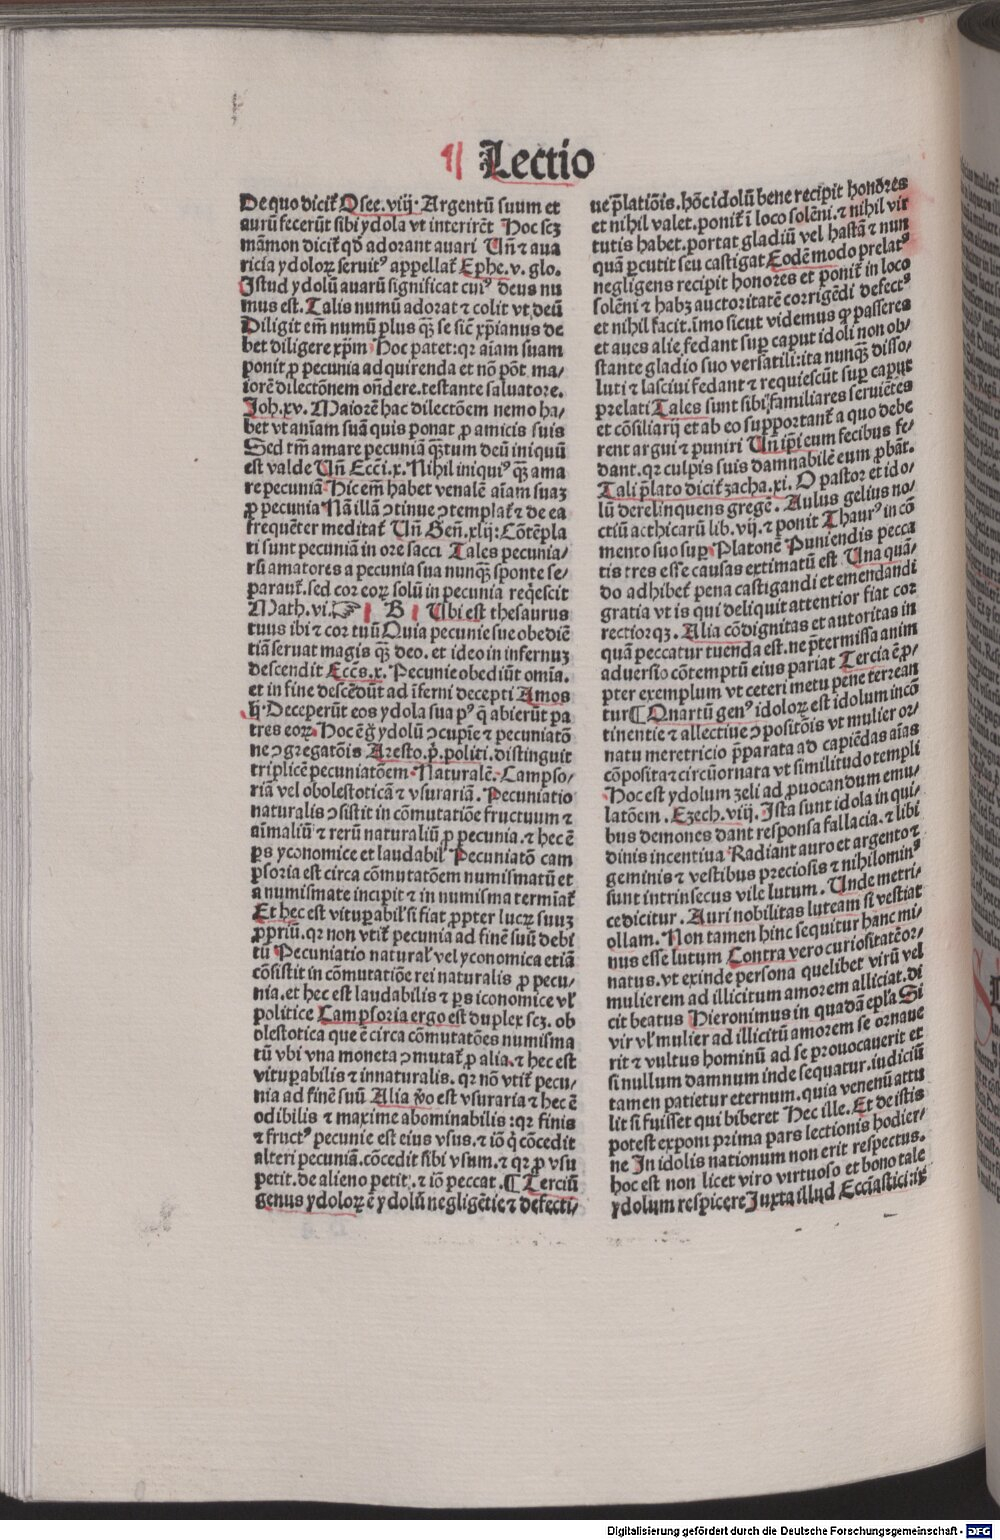 ¶ Lectio
De quo dicit̃ Osee. viij. Argentũ suum et
aurũ fecerũt sibi ydola vt interirẽt Hoc scꝫ
mãmon dicit̃ qđ adorant auari Vñ ⁊ aua
ricia ydoloꝝ seruitꝰ appellat̃ Ephe. v. glo.
Istud ydolũ auarũ significat cuiꝰ deus nu
mus est. Talis numũ adorat ⁊ colit vt deũ
Diligit em̃ numũ plus qꝫ̃ se sic̃ xp̃ianus de
bet diligere xp̃m Hoc patet: qꝛ aĩam suam
ponit ꝓ pecunia adquirenda et nõ põt ma⸗
iorẽ dilectõnem oñdere. testante saluatore.
Joh. xv. Maiorẽ hac dilectõem nemo ha⸗
bet vt aniam suã quis ponat ꝓ amicis suis
Sed tm̃ amare pecuniã qꝫ̃tum deũ iniquũ
est valde Vñ Ecci. x. Nihil iniquiꝰ qꝫ̃ ama
re pecuniã Hic em̃ habet venalẽ aĩam suaꝫ
ꝓ pecunia Nã illã ↄtinue ↄtemplat̃ ⁊ de ea
frequẽter meditat̃ Vñ Geñ. xlij: Cõtẽpla
ti sunt pecuniã in ore sacci Tales pecunia⸗
rũ amatores a pecunia sua nunqꝫ̃ sponte se⸗
parant̃. sed cor eoꝝ solũ in pecunia reqͥescit
Math. vi. ☞ B Vbi est thesaurus
tuus ibi ⁊ cor tuũ Quia pecunie sue obediẽ
tiã seruat magis qꝫ̃ deo. et ideo in infernuꝫ
descendit Eccs̃. x. Pecunie obediũt omĩa.
et in fine descẽdũt ad ĩferni decepti Amos
ij. Deceperũt eos ydola sua pꝰ q̃ abierũt pa
tres eoꝝ Hoc ẽ g̃ ydolũ ↄcupĩe ⁊ pecuniatõ
ne ↄgregatõis Aresto. p̃. politi. distinguit
triplicẽ pecuniatõem. Naturalẽ. Campso⸗
riã vel obolestoticã ⁊ vsurariã. Pecuniatio
naturalis ↄsistit in cõmutatiõe fructuum ⁊
aĩmaliũ ⁊ rerũ naturaliũ ꝓ pecunia. ⁊ hec ẽ
p̱s yconomice et laudabiľ Pecuniatõ cam
psoria est circa cõmutatõem numismatũ et
a numismate incipit ⁊ in numisma termiat̃
Et hec est vituꝑabiľ si fiat ꝓpter lucꝝ suuꝫ
ꝓpriũ. qꝛ non vtit̃ pecunia ad finẽ suũ debi
tũ Pecuniatio naturaľ vel yconomica etiã
cõsistit in cõmutatiõe rei naturalis ꝓ pecu⸗
nia. et hec est laudabilis ⁊ ꝑs iconomice vľ
politice Campsoria ergo est duplex scꝫ. ob
olestotica que ẽ circa cõmutatões numisma
tũ vbi vna moneta ↄmutat̃ ꝓ alia. ⁊ hec est
vituꝑabilis ⁊ innaturalis. qꝛ nõ vtit̃ pecu⸗
nia ad finẽ suũ Alia ꝟo est vsuraria ⁊ hec ẽ
odibilis ⁊ maxime abominabilis: qꝛ finis
⁊ fructꝰ pecunie est eius vsus. ⁊ iõ qͥ cõcedit
alteri pecuniã. cõcedit sibi vsum. ⁊ qꝛ ꝓ vsu
petit. de alieno petit. ⁊ iõ peccat. ¶ Terciũ
genus ydoloꝝ ẽ ydolũ negligẽtie ⁊ defecti⸗
ue p̃latiõis. hõc idolũ bene recipit honores
et nihil valet. ponit̃ ĩ loco solẽni. ⁊ nihil vir
tutis habet. portat gladiũ vel hastã ⁊ nun
quã ꝑcutit seu castigat Eodẽ modo prelatꝰ
negligens recipit honores et ponit̃ in loco
solẽni ⁊ habꝫ auctoritatẽ corrigẽdi defectꝰ
et nihil facit. ĩmo sicut videmus ꝙ passeres
et aues alie fedant suꝑ caput idoli non ob⸗
stante gladio suo versatili: ita nunqꝫ̃ disso⸗
luti ⁊ lasciui fedant ⁊ requiescũt suꝑ caput
prelati Tales sunt sibi familiares seruiẽtes
et cõsiliarij et ab eo supportant̃ a quo debe
rent argui ⁊ puniri Vñ ip̃i eum fecibus fe⸗
dant. qꝛ culpis suis damnabilẽ eum ꝓbãt.
Tali p̃lato dicit̃ zacha. xi. O pastor et ido⸗
lũ derelinquens gregẽ. Aulus gelius no⸗
ctiũ acthicarũ lib. vij. ⁊ ponit Thaurꝰ in cõ
mento suo suꝑ Platonẽ Puniendis pecca
tis tres esse causas extimatũ est Vna quã⸗
do adhibet̃ pena castigandi et emendandi
gratia vt is qui deliquit attentior fiat cor
rectiorqꝫ. Alia cõ dignitas et autoritas in
quã peccatur tuenda est. ne p̃termissa anim
aduersio cõtemptũ eius pariat Tercia ẽ ꝓ⸗
pter exemplum vt ceteri metu pene terrean
tur ¶ Quartũ genꝰ idoloꝝ est idolum incõ
tinentie ⁊ allectiue ↄpositõis vt mulier or⸗
natu meretricio p̃parata ad capiẽdas aĩas
cõposita ⁊ circũornata vt similitudo templi
Hoc est ydolum zeli ad ꝓuocandum emu⸗
latõem. Ezech. viij. Ista sunt idola in qui⸗
bus demones dant responsa fallacia. ⁊ libi
dinis incentiua Radiant auro et argento ⁊
geminis ⁊ vestibus preciosis ⁊ nihilominꝰ
sunt intrinsecus vile lutum. Vnde metri⸗
ce dicitur. Auri nobilitas luteam si vestiat
ollam. Non tamen hinc sequitur hanc mi⸗
nus esse lutum Contra vero curiositatẽ or⸗
natus. vt exinde persona quelibet virũ vel
mulierem ad illicitum amorem alliciat. di
cit beatus Hieronimus in quadã epľa Si
vir vľ mulier ad illicitũ amorem se ornaue
rit ⁊ vultus hominũ ad se prouocauerit et
si nullum damnum inde sequatur. iudiciũ
tamen patietur eternum. quia venenũ attu
lit si fuisset qui biberet Hec ille. Et de istis
potest exponi prima pars lectionis hodier⸗
ne In idolis nationum non erit respectus.
hoc est non licet viro virtuoso et bono tale
ydolum respicere Juxta illud Eccĩastici: ix
Digitalisierung gefördert durch die Deutsche Forschungsgemeinschaft - DFG